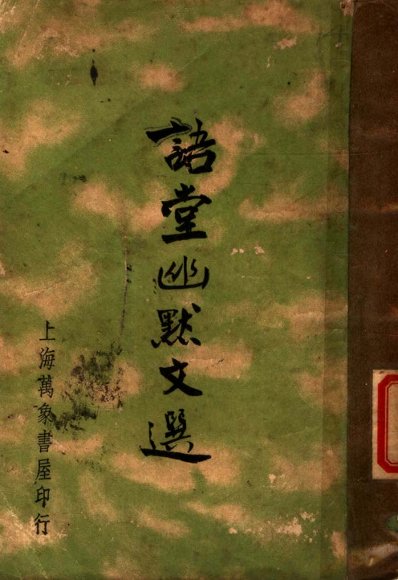 語堂幽默文選
上海萬象書屋印行